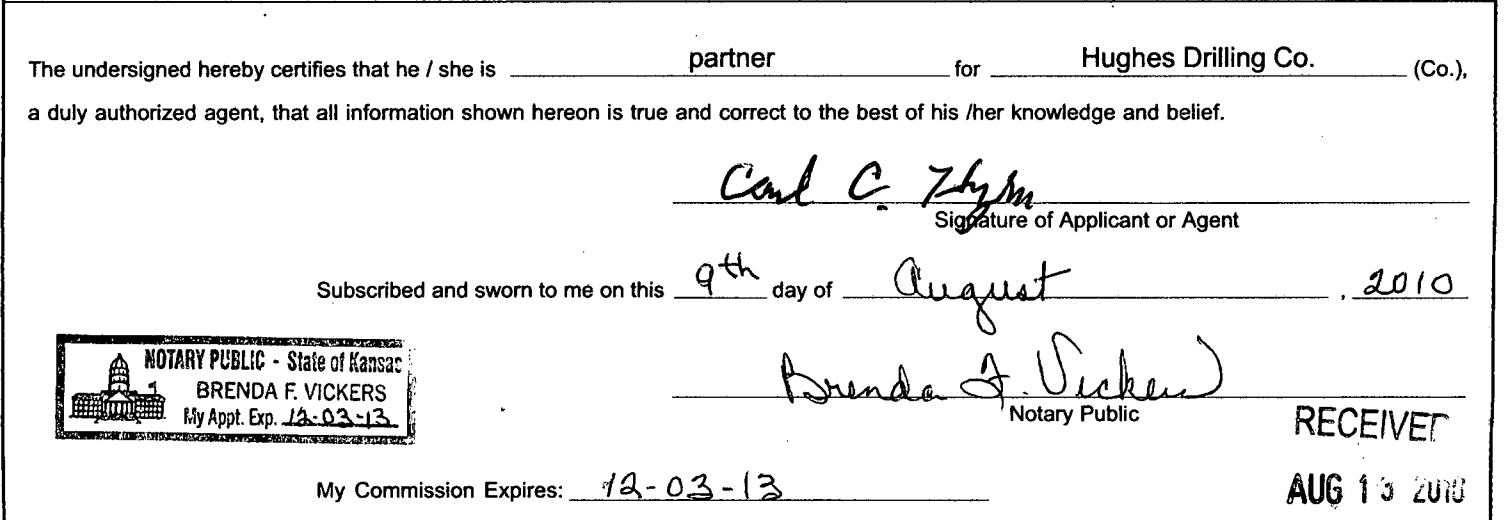 The undersigned hereby certifies that he / she is partner for Hughes Drilling Co. (Co.),
a duly authorized agent, that all information shown hereon is true and correct to the best of his /her knowledge and belief.
Carl C.
Signature of Applicant or Agent
Subscribed and sworn to me on this 9th day of August, 2010
NOTARY PUBLIC - State of Kansas
BRENDA F. VICKERS
My Appt. Exp. 12-03-13
Brenda F. Vickers
Notary Public
RECEIVED
My Commission Expires: 12-03-13
AUG 13 2010